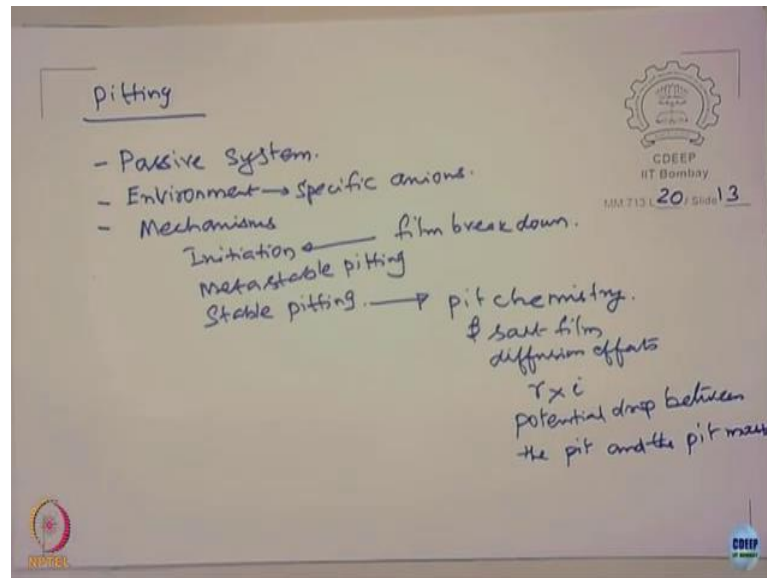 Pitting
CDEEP
IIT Bombay
MM 713 L 20 / Slide 13
- Passive System.
- Environment → Specific anions.
- Mechanisms
Initiation ← film breakdown.
Metastable pitting
Stable pitting. → pit chemistry.
& salt film
diffusion effects
r x i
potential drop between
the pit and the pit
NPTEL
CDEEP
IIT BOMBAY